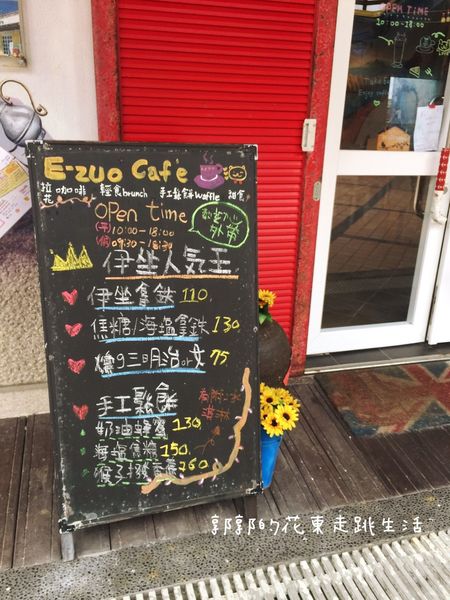 E-zuo Cafe
拉花咖啡 輕食brunch 手工鬆餅waffle 甜食
OPen time
(平)10:00-18:00
(假)09:30-18:30
歡迎外帶
伊坐人気王
伊坐拿鉄 110
焦糖/海塩拿鉄 130
三明治or 75
手工鬆餅
奶油蜂蜜 130
海塩焦糖 150
猴子 香蕉 160
OPEN TIME
10:00-18:00
郭郭的花東走跳生活